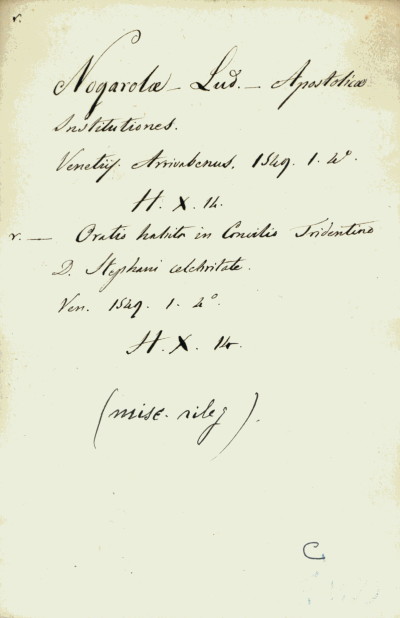 r.
Nogarolæ - Lud. - Apostolicæ
Institutiones.
Venetijs Arrivabenus. 1549. 1. 4°.
H. X. 14.
r. — Oratio habita in Concilio Tridentino
D. Stephani celebritate.
Ven. 1549. 1. 4°.
H. X. 14.
(misc. rileg).
C